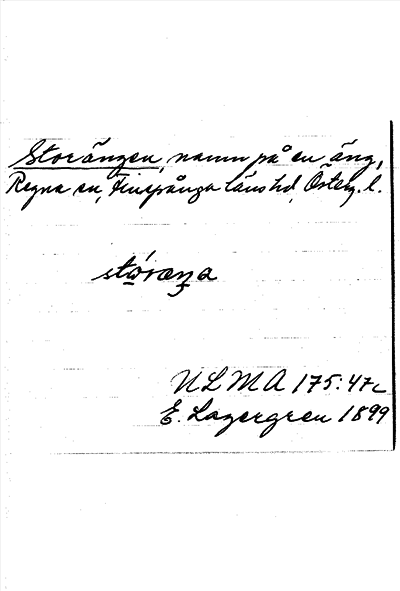 Storängen, namn på en äng,
Regna sn, Finspånga läns hd, Österg. l.
stóræŋa
ULMA 175:47c
E. Lagergren 1899